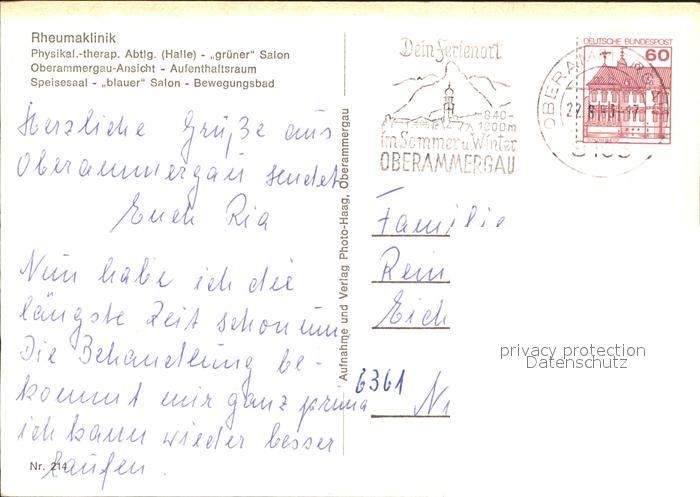 Rheumaklinik
Physikal.-therap. Abtlg. (Halle) - „grüner“ Salon
Oberammergau-Ansicht - Aufenthaltsraum
Speisesaal - „blauer“ Salon - Bewegungsbad
Herzliche Grüße aus
Oberammergau sendet
Euch Ria
Nun habe ich die
längste Zeit schon um
Die Behandlung be-
kommt mir ganz prima
ich kann wieder besser
laufen.
Nr. 214
Aufnahme und Verlag Photo-Haag, Oberammergau
Dein Ferienort
840-
1800m
im Sommer u. Winter
OBERAMMERGAU
DEUTSCHE BUNDESPOST
60
Familie
Rein
Eich
6361 Ni
privacy protection
Datenschutz